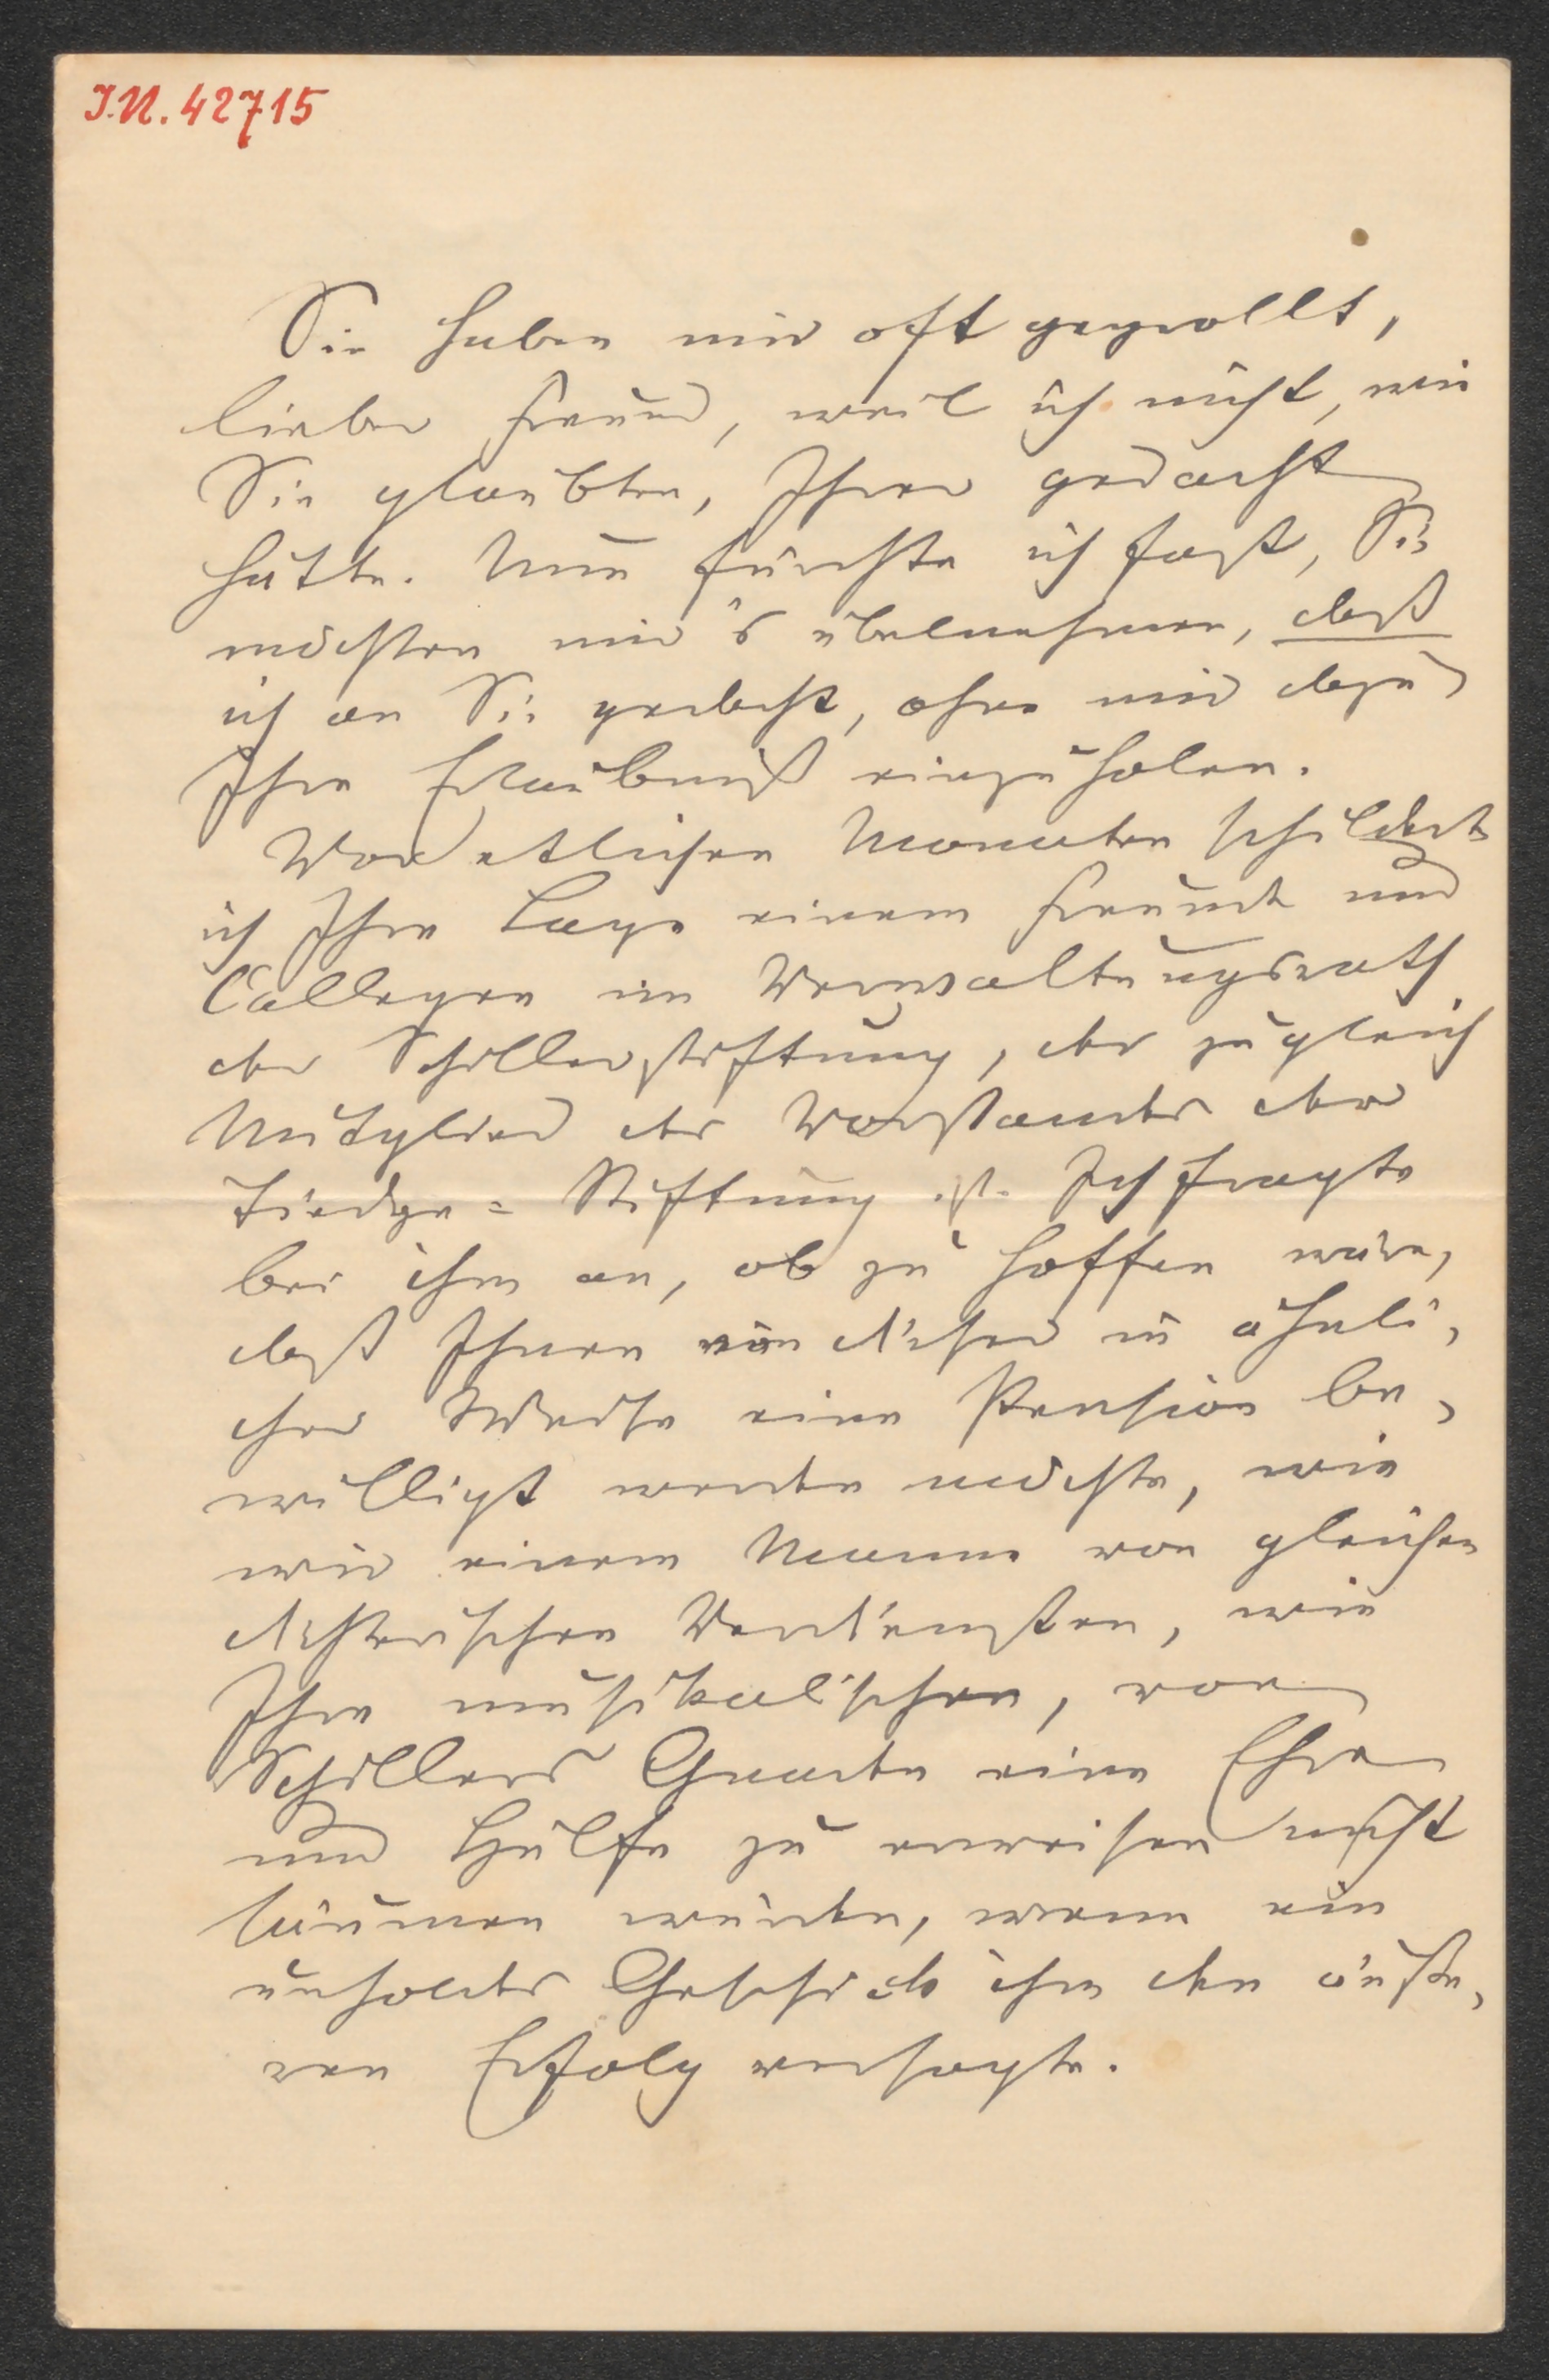 J.N. 42715
Sie haben mir oft gegrollt,
lieber Freund, weil ich nicht, wie
Sie glaubten, Ihrer gedacht
hätte. Nun fürchte ich fast, Sie
möchten mir's übelnehmen, daß
ich an Sie gedacht, ohne mir dazu
Ihre Erlaubniß einzuholen.
Vor etlichen Monaten schilderte
ich Ihre Lage einem Freunde und
Collegen im Verwaltungsrath
der Schillerstiftung, der zugleich
Mitglied des Vorstandes der
Tiedge-Stiftung ist. Ich fragte
bei ihm an, ob zu hoffen wäre,
daß Ihnen von dieser in ähnli-
cher Weise eine Pension be-
willigt werden möchte, wie
wir einem Manne von gleichen
dichterischen Verdiensten, wie
Ihre musikalischen, von
Schillers Gnaden eine Ehre
und Hülfe zu erweisen nicht
säumen würden, wenn ein
unholdes Geschick ihm den äuße-
ren Erfolg versagte.